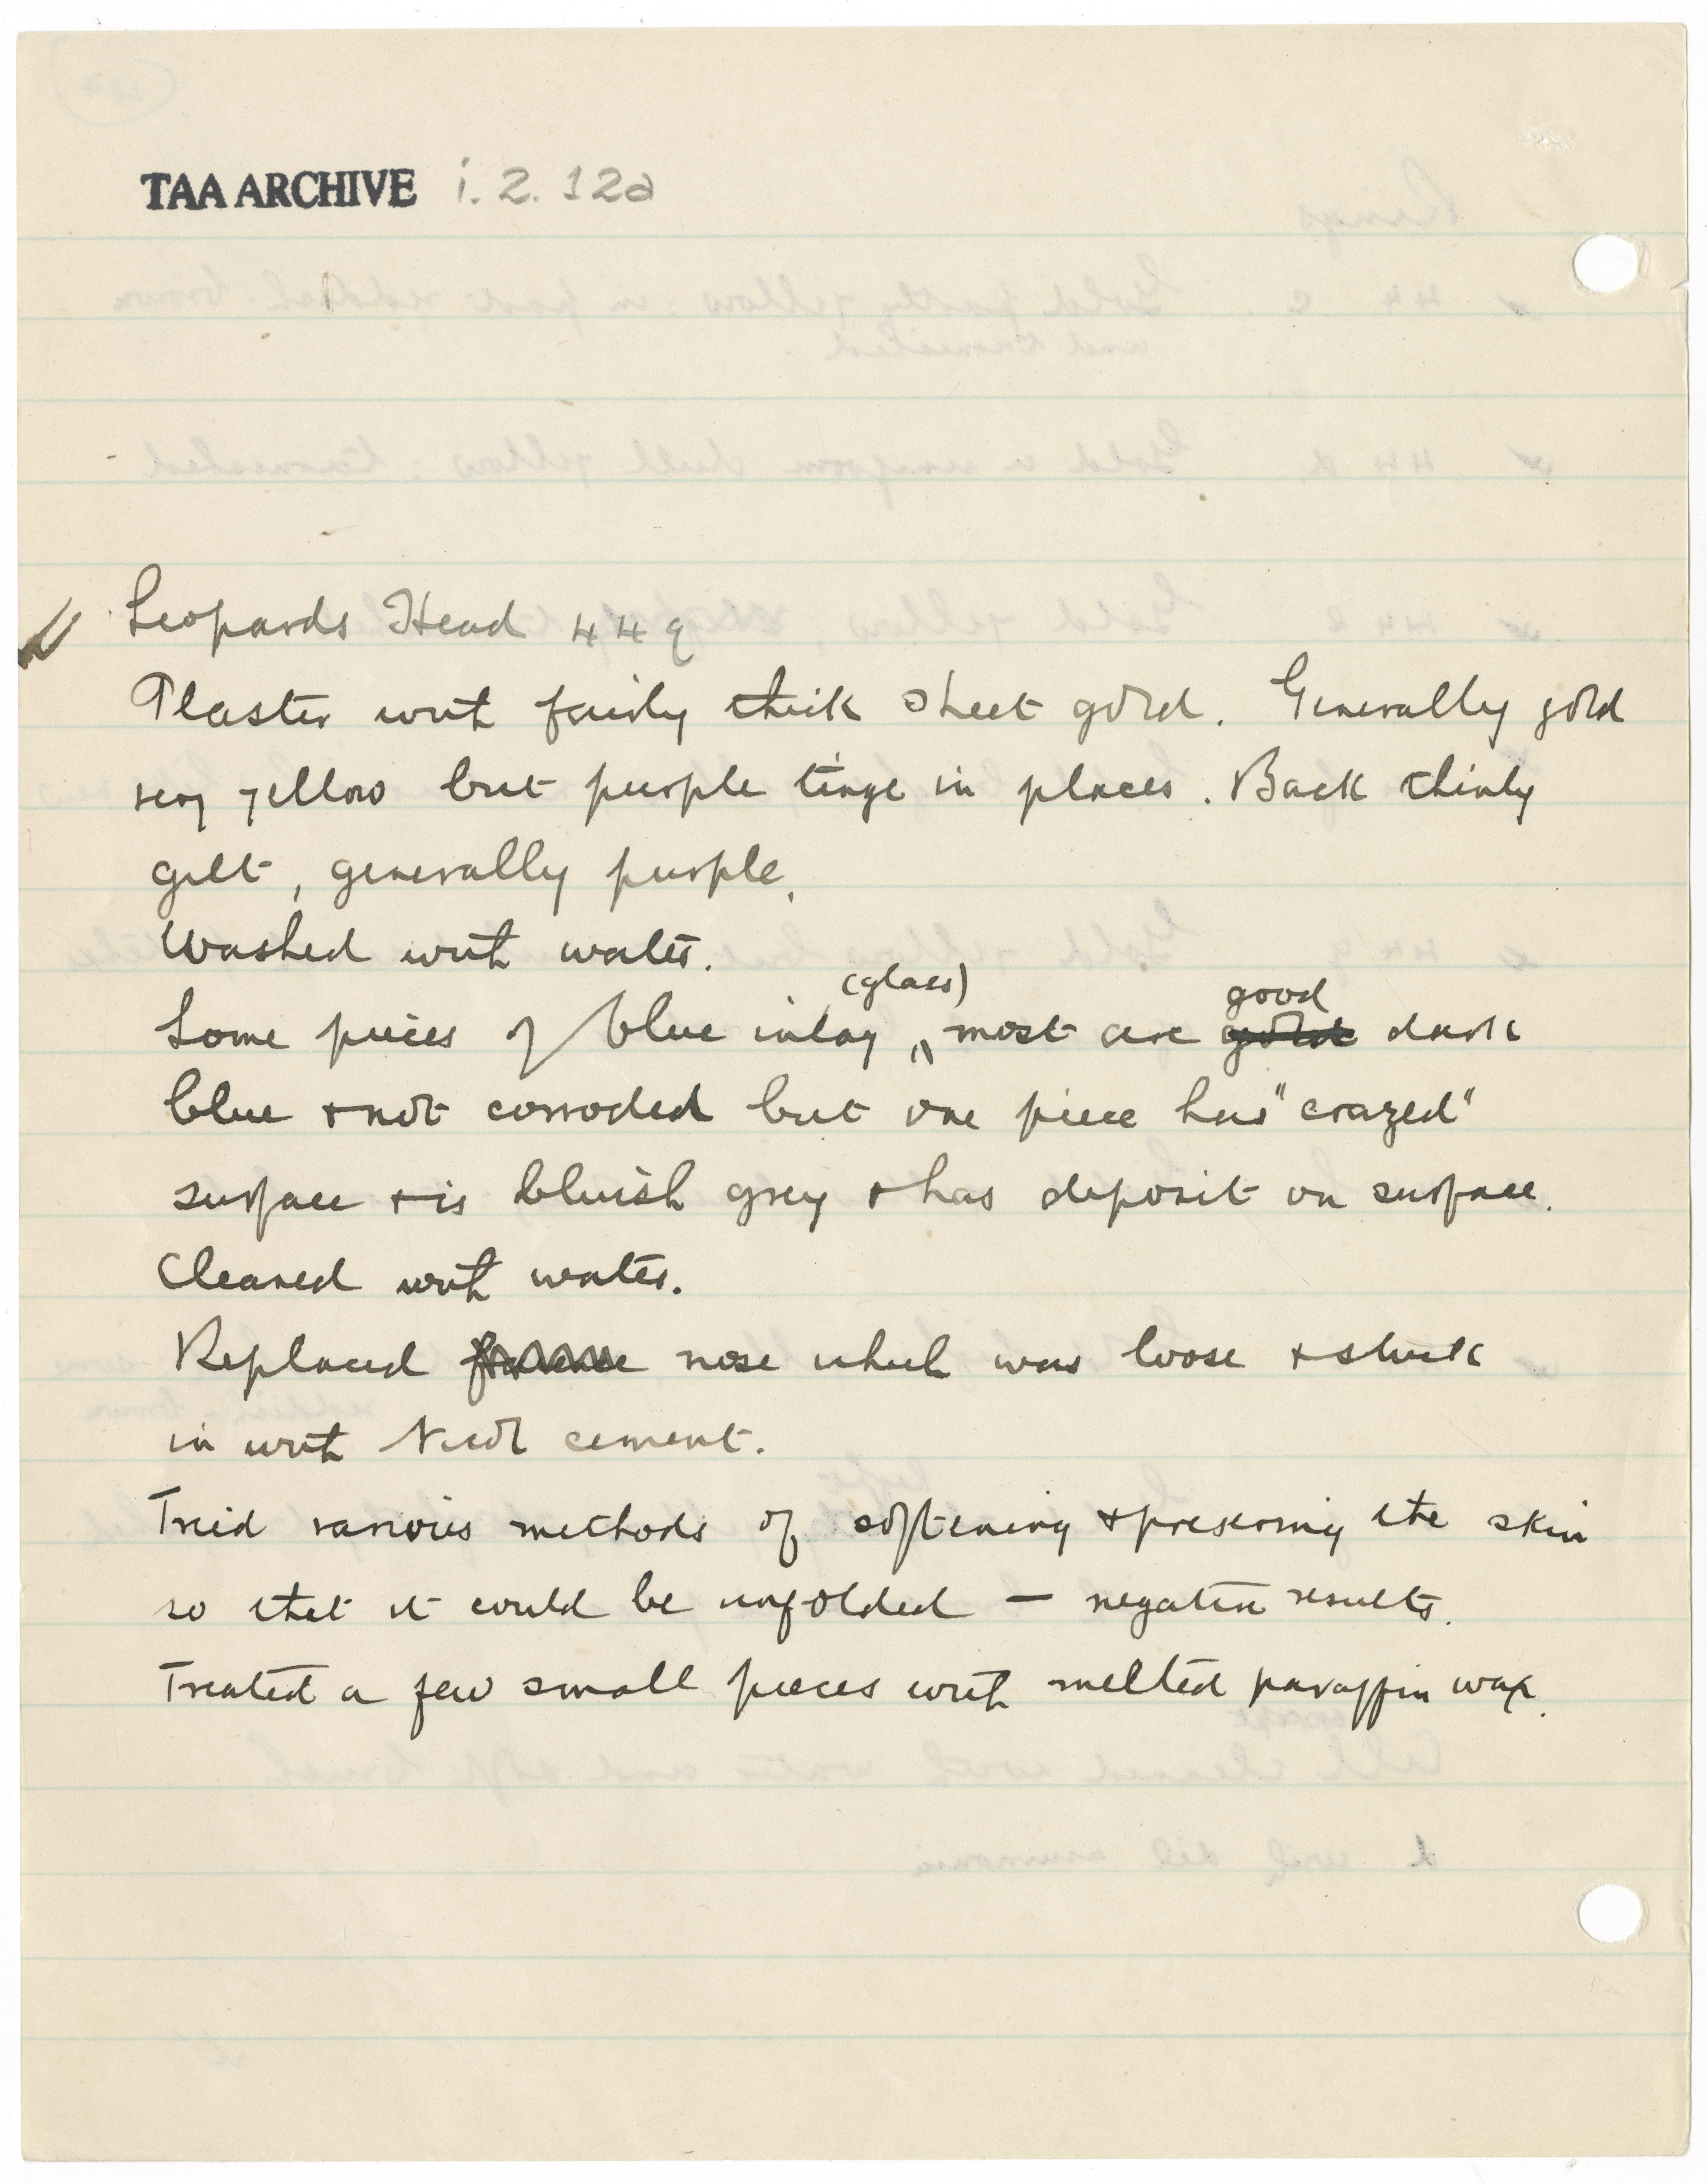 TAA ARCHIVE i.2.12a
Leopards Head 44q
Plaster with fairly thick sheet gold. Generally gold
very yellow but purple tinge in places. Back thinly
gilt, generally purple.
Washed with water.
(glass) good
Some pieces of blue inlay, most are dark
blue + not corroded but one piece has "crazed"
surface + is bluish grey + has deposit on surface.
Cleaned with water.
Replaced nose which was loose + stuck
in with cement.
Tried various methods of softening + preserving the skin
so that it could be unfolded — negative results.
Treated a few small pieces with melted paraffin wax.